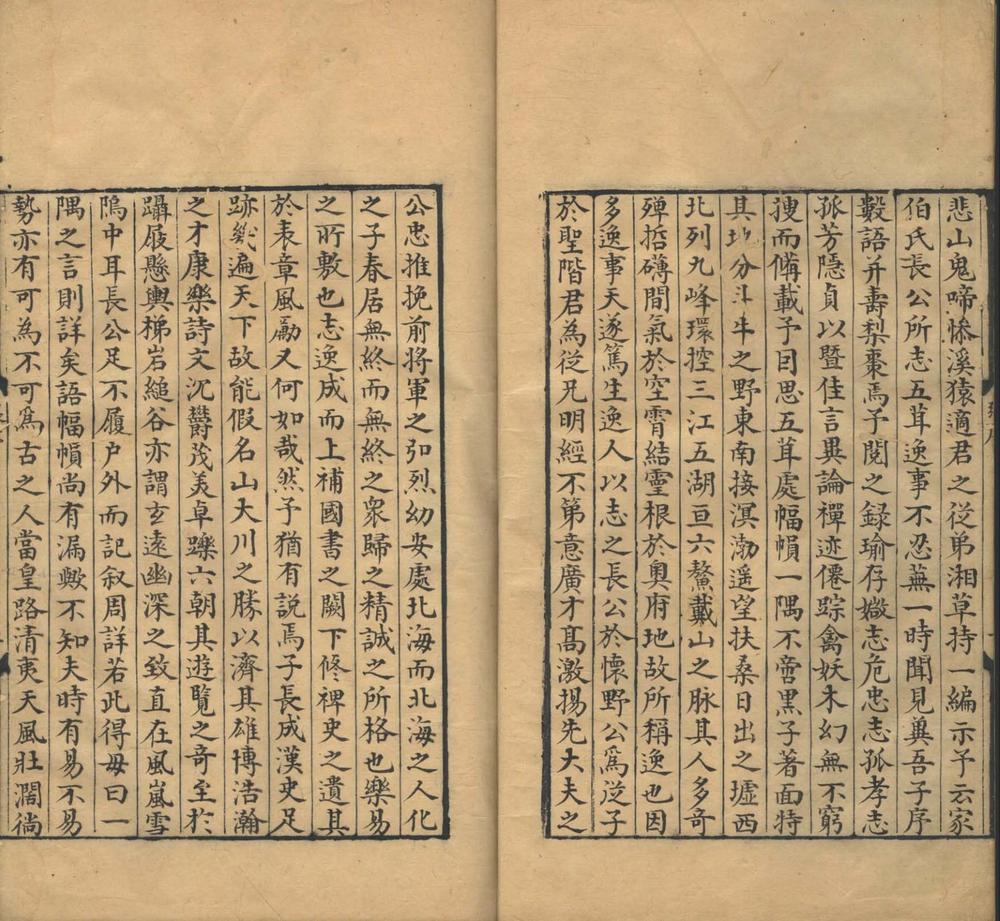 悲山鬼啼慘溪猿適君之從弟湘草持一編示予云家
伯氏長公所志五茸逸事不忍蕪一時聞見冀吾子序
數語并壽梨棗焉予閱之録瑜存媺志危忠志孤孝志
孤芳隱貞以暨佳言異論禪迹僊踪禽妖木幻無不窮
搜而備載予因思五茸處幅幀一隅不啻黑子著面特
其地分斗牛之野東南接溟渤遥望扶桑日出之墟西
北列九峰環控三江五湖亘六鰲戴山之脉其人多奇
殫哲礡間氣於空霄結靈根於奥府地故所稱逸也因
多逸事天遂篤生逸人以志之長公於懷野公爲從子
於聖階君為從兄明經不第意廣才髙激揚先大夫之
公忠推挽前將軍之弘烈幼安處北海而北海之人化
之子春居無終而無終之衆歸之精誠之所格也樂易
之所敷也志逸成而上補國書之闕下修稗史之遺其
於表章風勵又何如哉然予猶有説焉子長成漢史足
跡幾遍天下故能假名山大川之勝以濟其雄博浩瀚
之才康樂詩文沉鬱茂美卓躒六朝其遊覽之奇至於
躡屐懸輿梯岩縋谷亦謂玄遠幽深之致直在風嵐雪
隖中耳長公足不履户外而記叙周詳若此得毋曰一
隅之言則詳矣語幅幀尚有漏歟不知夫時有易不易
勢亦有可為不可爲古之人當皇路清夷天風壯濶徜